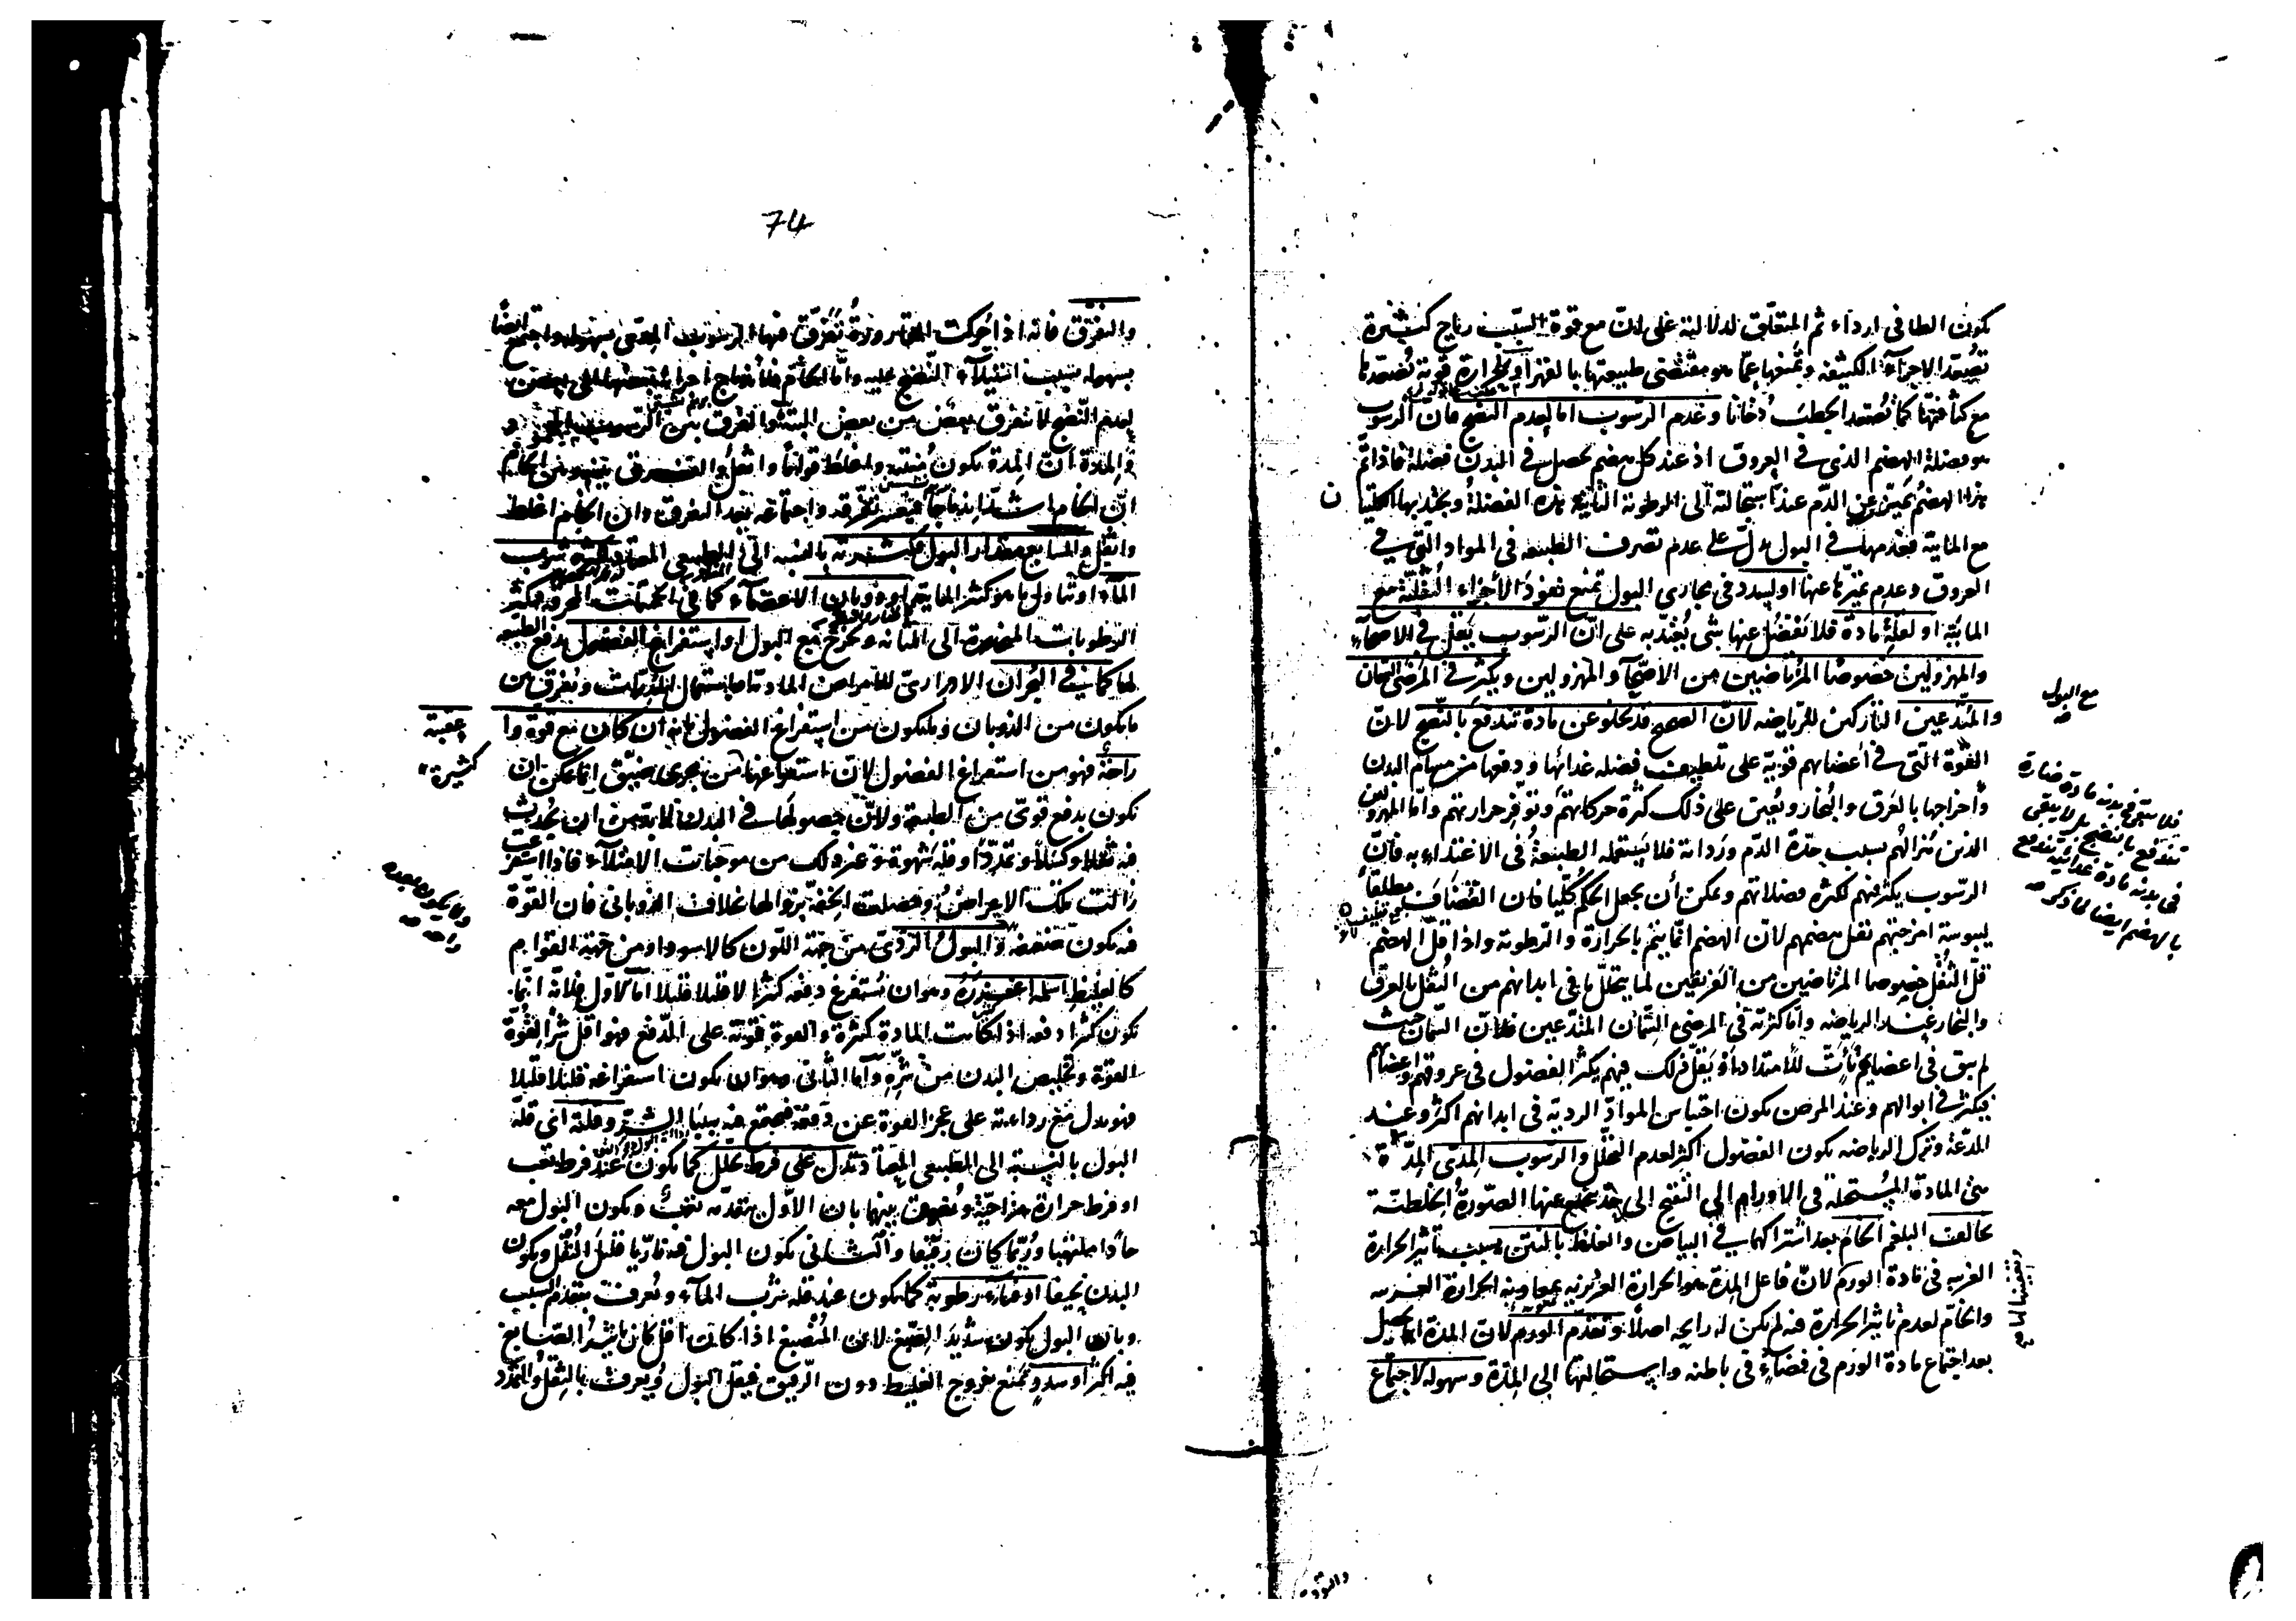 يكون الطافى ارداء ثم المتعلق لدلالته على انّ مع قوة السبب رياح كثيرة
تصعد الاجزاء الكثيفه وتمنعها عما هو مقتضى طبيعتها بالقهر او لحرارة قوية تصعدها
مع كثافتها كما تصعد الحطب دخانا وعدم الرسوب اما لعدم النضج فان الرسوب
هو فضلة الهضم الذى فى العروق اذ عند كل هضم يحصل فى البدن فضلة فاذا تم
هذا الهضم تميز عن الدم عند استحالته الى الرطوبة الثانية هذه الفضلة ويجذبها الكليتان
مع المائية فعدمها فى البول دل على عدم تصرف الطبيعه فى المواد التى فى
العروق وعدم تميزها عنها او لسدد فى مجارى البول تمنع نفوذ الأجزاء الثفلية مع
المائية او لقلة مادة فلا تفضل عنها شى يعتد به على ان الرسوب يقل فى الاصحاء
والمهزولين خصوصا المرتاضيين من الاصحاء والمهزولين ويكثر فى المرضى السمان
والمتدعين التاركين للرياضه لان الصحيح قد يخلو عن مادة تندفع بالنضج لان
مع البول
القوة التى فى أعضائهم قوية على تلطيف فضلة غذائها ودفعها من مسام البدن
واخراجها بالعرق والبخار ويعين على ذلك كثرة حركاتهم وتوفر حرارتهم واما المهزولين
الذين هزالهم بسبب حدة الدم ورداءته فلا يستعمله الطبيعة فى الاغتذاء به فان
الرسوب يكثر فيهم لكثرة فضلاتهم ويمكن أن يجعل الحكم كليا فان القضاف مطلقا
ليبوسة امزجتهم تقل هضمهم لان الهضم انما يتم بالحرارة والرطوبة واذا قل الهضم
قل الثفل خصوصا المرتاضيين من الفريقين لما يتحلل ما فى ابدانهم من الثفل بالعرق
والبخار عند الرياضه واما كثرته فى المرضى السمان المتدعين فلان السمان حيث
لم يبق فى اعضايهم للامتداد او يقل ذلك فيهم يكثر الفضول فى عروقهم واعضائهم
فيكثر فى ابوالهم وعند المرض يكون احتباس المواد الردية فى ابدانهم اكثر وعند
الدعة وترك الرياضه يكون الفضول اكثر لعدم التحلل والرسوب المدى المدة
هى المادة المستحيلة فى الاورام الى التقيح الى حد يخلع عنها الصورة الخلطية
يخالف البلغم الخام بعد اشتراكهما فى البياض والغلظ بالنتن بسبب تأثير الحرارة
الغريبه فى مادة الورم لان فاعل المدة هو الحرارة الغريزيه بمعاونة الحرارة الغريبه
والخام لعدم تاثير الحرارة فيه لم يكن له رايحه اصلا وتقدم الورم لان المدة انما يحصل
بعد اجتماع مادة الورم فى فضاء فى باطنه واستحالتها الى المدة وسهوله الاجتماع
74
والتفرق فانه اذا حركت القارورة تفرق فيها الرسوب المدى بسهوله واجتمع ايضا
بسهوله بسبب استيلاء النضج عليه واما الخام فلاندماج اجزائه بعضها الى بعض
لعدم النضج لا تتفرق بعض من بعض البته والفرق بين الرسوب
والمدة ان المدة يكون منتنه واغلظ قواما واثقل والفرق بينه وبين الخام
ان الخام اشد اندماجا فيعسر تفرقه واجتماعه بعد التفرق وان الخام اغلظ
واثقل والسابع مقدار البول فكثرته بالنسبه الى الطبيعى المعتاد لكثرة شرب
الماء او تناول ما هو كثير المايية او ذوبان الاعضاء كما فى الحميات المحرقه فيكثر
الرطوبات المنحدرة الى المثانه وتخرج مع البول او استفراغ الفضول بدفع الطبيعه
لها كما فى البحران الادرارى للامراض المادية او باستعمال المدرات ويفرق بين
ما يكون من الذوبان وما يكون من استفراغ الفضول بانه ان كان مع قوة وا عقبته
راحة فهو من استفراغ الفضول لان استفراغها من مجرى ضيق انما يمكن ان
كثيرة
يكون بدفع قوى من الطبيعة ولان حصولها فى البدن لا بد من ان يحدث
فيه ثقلا وكسلا وتمددا وقلة شهوة وغير ذلك من موجبات الامتلاء فاذا استفرغت
زالت تلك الاعراض وحصلت الخفة بزوالها بخلاف الذوبانى فان القوة
فيه يكون ضعيفه والبول الردى من جهة اللون كالاسود او من جهة القوام
كالغليظ اسلمه اغزره وهو ان يستفرغ دفعه كثيرا لا قليلا قليلا اما الاول فلانه انما
يكون كثيرا دفعه اذا كانت المادة كثيرة والقوة قوية على الدفع فهو اقل شرا لقوة
القوة وتخليص البدن من شره واما الثانى وهو ان يكون استفراغه قليلا قليلا
فهو يدل مع رداءته على عجز القوة عن دفعه فيجتمع فيه سببا الشر وقلته اى قلة
البول بالنسبة الى الطبيعى المعتاد تدل على فرط تحلل كما يكون عند فرط تعب
او فرط حرارة مزاجية ويفرق بينهما بان الاول يتقدمه تعب ويكون البول معه
حادا ملتهبا وربما كان رقيقا والثانى يكون البول فيه ناريا قليل الثفل ويكون
البدن نحيفا او فناء رطوبة كما يكون عند قلة شرب الماء ويعرف بتقدم السبب
وبان البول يكون شديد الصبغ لان المنصبغ اذا كانت اقل كان تاثير الصابغ
فيه اكثر او سدد تمنع خروج الغليظ دون الرقيق فيقل البول ويعرف بالثقل والتمدد